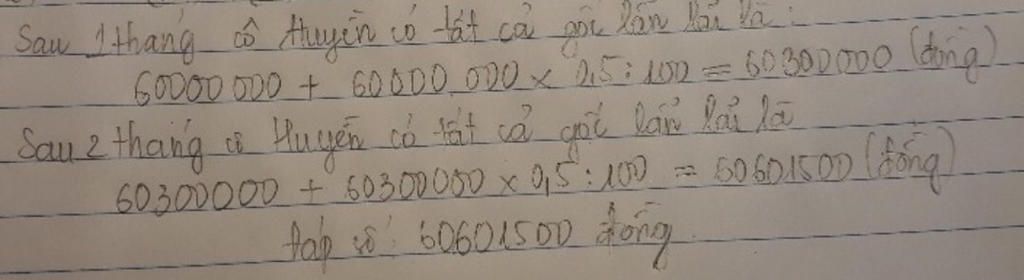 Sau 1 tháng cô Huyền có tất cả gốc lẫn lãi là:
60000000 + 60000000 × 0,5 : 100 = 60300000 (đồng)
Sau 2 tháng cô Huyền có tất cả gốc lẫn lãi là
60300000 + 60300000 × 0,5 : 100 = 60601500 (đồng)
Đáp số: 60601500 đồng